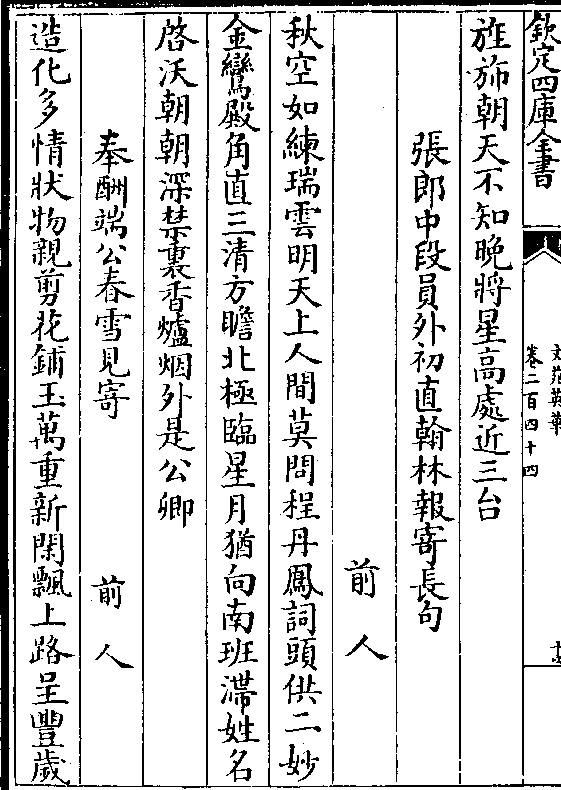 欽定四庫全書
文苑英華
卷二百四十四
旌斾朝天不知晚將星高處近三台
張郎中段員外初直翰林報寄長句
前人
秋空如練瑞雲明天上人間莫問程丹鳳詞頭供二妙
金鑾殿角直三清方瞻北極臨星月猶向南班滯姓名
啓沃朝朝深禁裏香爐烟外是公卿
奉酬端公春雪見寄
前人
造化多情狀物親剪花鋪玉萬重新閑飄上路呈豐歲